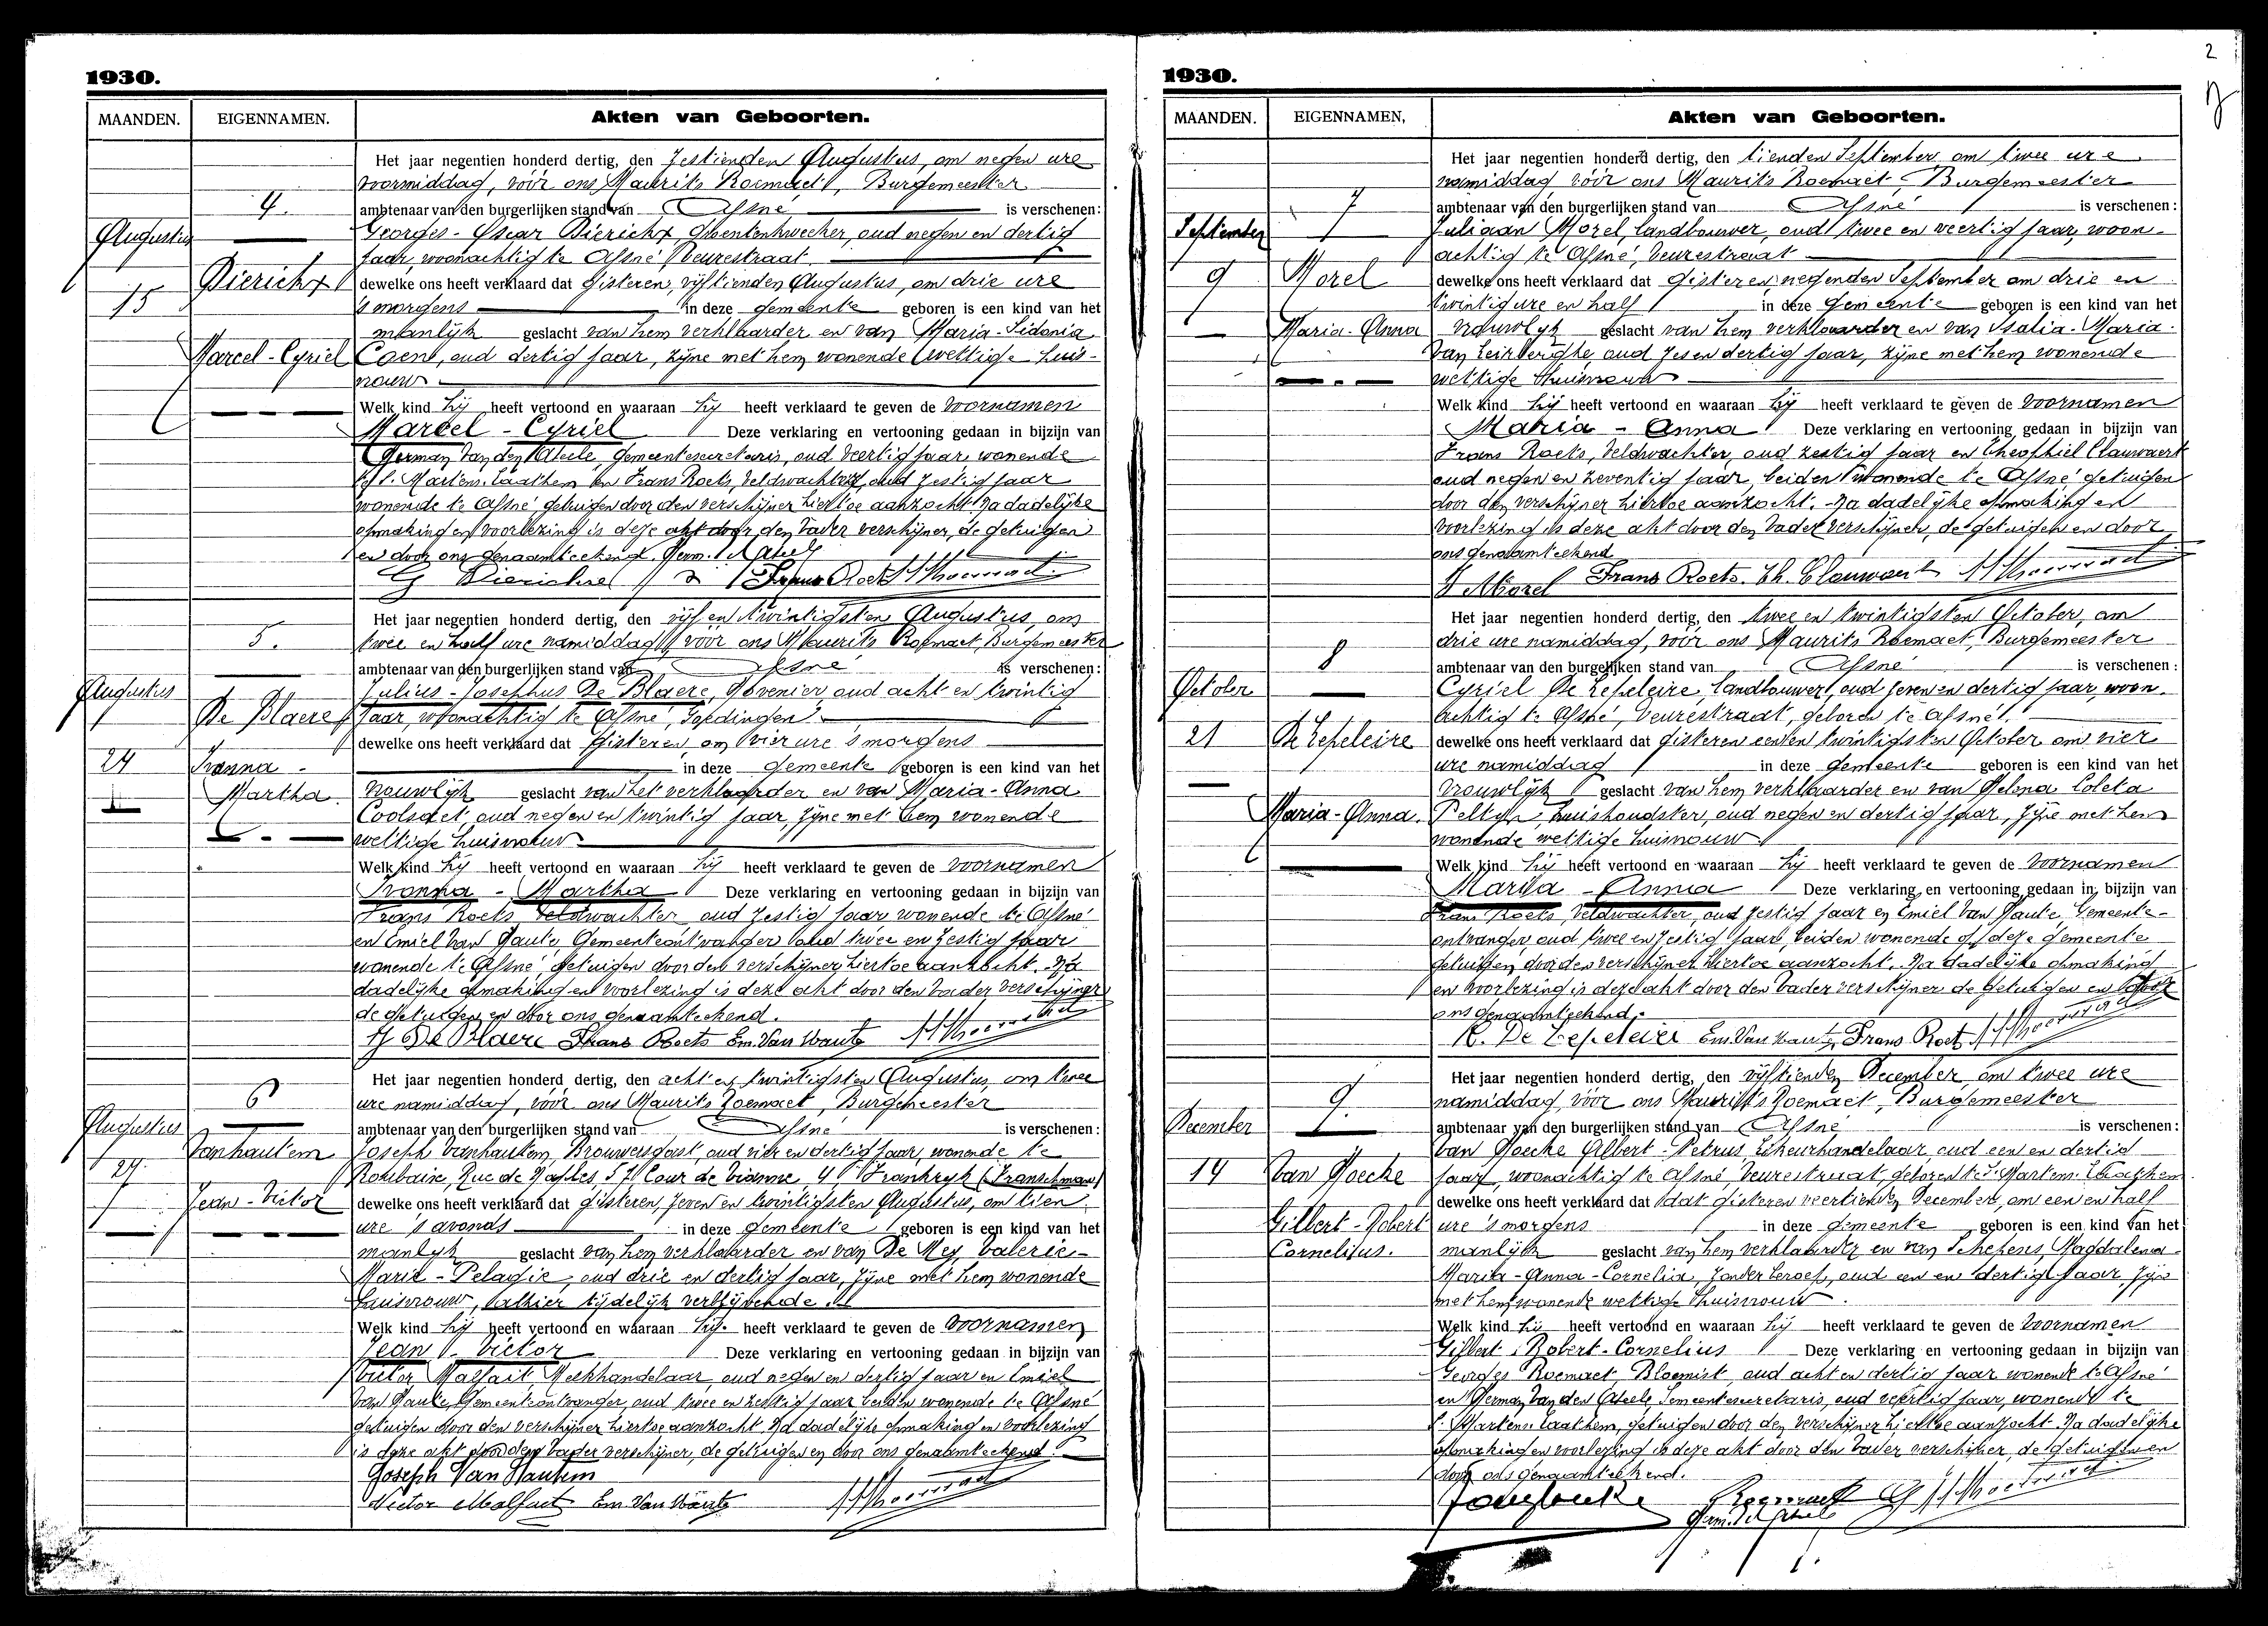 1930.
MAANDEN. EIGENNAMEN. Akten van Geboorten.
Het jaar negentien honderd dertig, den zestienden Augustus, om negen ure
voormiddag, vóór ons Maurits Roemaet, Burgemeester
4. ambtenaar van den burgerlijken stand van Afsné is verschenen:
Augustus Georges-Oscar Dierickx, groentenkweeker, oud negen en dertig
jaar, woonachtig te Afsné, Veurestraat.
Dierickx dewelke ons heeft verklaard dat gisteren, vijftienden Augustus, om drie ure
15 's morgens in deze gemeente geboren is een kind van het
manlijk geslacht van hem verklaarder en van Maria-Sidonia
Marcel-Cyriel Coene, oud dertig jaar, zijne met hem wonende wettige huis-
vrouw
Welk kind hij heeft vertoond en waaraan hij heeft verklaard te geven de voornamen
Marcel - Cyriel Deze verklaring en vertooning gedaan in bijzijn van
German Van den Abeele, gemeentesecretaris, oud veertig jaar, wonende
St. Martens-Laathem en Frans Roets, veldwachter, oud zestig jaar
wonende te Afsné getuigen door den verschijner hiertoe aanzocht. Na dadelijke
opmaking en voorlezing is deze akt door den vader verschijner, de getuigen
en door ons genaamteekend. Germ. Vd Abeele
G Dierickx Frans Roets M Roemaet
Het jaar negentien honderd dertig, den vijf en twintigsten Augustus, om
5. twee en half ure namiddag, vóór ons Maurits Roemaet, Burgemeester
ambtenaar van den burgerlijken stand van Afsné is verschenen:
Augustus Julius-Josephus De Blaere, hovenier, oud acht en twintig
De Blaere jaar, woonachtig te Afsné, Goedingen.
dewelke ons heeft verklaard dat gisteren, om vier ure 's morgens
24 Ivonna - in deze gemeente geboren is een kind van het
Martha. vrouwlijk geslacht van het verklaarder en van Maria-Anna
Coolsaet, oud negen en twintig jaar, zijne met hem wonende
wettige huisvrouw
Welk kind hij heeft vertoond en waaraan hij heeft verklaard te geven de voornamen
Ivonna - Martha Deze verklaring en vertooning gedaan in bijzijn van
Frans Roets, veldwachter, oud zestig jaar wonende te Afsné
en Emiel Van Haute, Gemeenteontvanger oud twee en zestig jaar
wonende te Afsné, getuigen door den verschijner hiertoe aanzocht. Na
dadelijke opmaking en voorlezing is deze akt door den vader verschijner
de getuigen en door ons genaamteekend.
J De Blaere Frans Roets Em. Van Haute M Roemaet
Het jaar negentien honderd dertig, den acht en twintigsten Augustus, om twee
6 ure namiddag, vóór ons Maurits Roemaet, Burgemeester
Augustus ambtenaar van den burgerlijken stand van Afsné is verschenen:
Vanhautem Joseph Vanhautem, Brouwersgast, oud vier en dertig jaar, wonende te
27. Roubaix, Rue de Naples, 57 Cour de Vianne, 4 Frankrijk (Franschman)
Jean-Victor dewelke ons heeft verklaard dat gisteren, zeven en twintigsten Augustus, om tien
ure 's avonds in deze gemeente geboren is een kind van het
manlijk geslacht van hem verklaarder en van De Mey, Valerie-
Marie-Pelagie, oud drie en dertig jaar, zijne met hem wonende
huisvrouw, alhier tijdelijk verblijvende.
Welk kind hij heeft vertoond en waaraan hij heeft verklaard te geven de voornamen
Jean - Victor Deze verklaring en vertooning gedaan in bijzijn van
Victor Malfait, Melkhandelaar, oud negen en dertig jaar en Emiel
Van Haute, Gemeenteontvanger, oud twee en zestig jaar beiden wonende te Afsné
getuigen door den verschijner hiertoe aanzocht. Na dadelijke opmaking en voorlezing
is deze akt door den vader verschijner, de getuigen en door ons genaamteekend.
Joseph Van Hautem
Victor Malfait Em. Van Haute M Roemaet
2
1930.
MAANDEN. EIGENNAMEN, Akten van Geboorten.
Het jaar negentien honderd dertig, den tienden September om twee ure
namiddag, vóór ons Maurits Roemaet, Burgemeester
7 ambtenaar van den burgerlijken stand van Afsné is verschenen:
September Juliaan Morel, landbouwer, oud twee en veertig jaar, woon-
achtig te Afsné, Veurestraat
9 Morel dewelke ons heeft verklaard dat gisteren, negenden September om drie en
twintig ure en half in deze gemeente geboren is een kind van het
Maria-Anna vrouwlijk geslacht van hem verklaarder en van Isalia-Maria
Van Leirberghe oud zes en dertig jaar, zijne met hem wonende
wettige huisvrouw
Welk kind hij heeft vertoond en waaraan hij heeft verklaard te geven de voornamen
Maria - Anna Deze verklaring en vertooning gedaan in bijzijn van
Frans Roets, veldwachter, oud zestig jaar en Theophiel Clauwaert
oud negen en zeventig jaar, beiden wonende te Afsné getuigen
door den verschijner hiertoe aanzocht. Na dadelijke opmaking en
voorlezing is deze akt door den vader verschijner, de getuigen en door
ons genaamteekend
J Morel Frans Roets. Th. Clauwaert M Roemaet
Het jaar negentien honderd dertig, den twee en twintigsten October, om
drie ure namiddag, vóór ons Maurits Roemaet, Burgemeester
8 ambtenaar van den burgerlijken stand van Afsné is verschenen:
October Cyriel De Lepeleire, landbouwer, oud zeven en dertig jaar, woon-
achtig te Afsné, Veurestraat, geboren te Afsné.
21 De Lepeleire dewelke ons heeft verklaard dat gisteren een en twintigsten October om vier
ure namiddag in deze gemeente geboren is een kind van het
vrouwlijk geslacht van hem verklaarder en van Helena Coleta
Maria-Anna. Peltyn, huishoudster, oud negen en dertig jaar, zijne met hem
wonende wettige huisvrouw
Welk kind hij heeft vertoond en waaraan hij heeft verklaard te geven de voornamen
Maria - Anna Deze verklaring en vertooning gedaan in bijzijn van
Frans Roets, veldwachter, oud zestig jaar en Emiel Van Haute, Gemeente-
ontvanger, oud twee en zestig jaar, beiden wonende op deze gemeente
getuigen door den verschijner hiertoe aanzocht. Na dadelijke opmaking
en voorlezing is deze akt door den vader verschijner de getuigen en door
ons genaamteekend.
K. De Lepeleire Em. Van Haute Frans Roets M Roemaet
Het jaar negentien honderd dertig, den vijftienden December, om twee ure
9. namiddag, vóór ons Maurits Roemaet, Burgemeester
December ambtenaar van den burgerlijken stand van Afsné is verschenen:
Van Hoecke Albert-Petrus, Likeurhandelaar, oud een en dertig
14 Van Hoecke jaar, woonachtig te Afsné, Veurestraat, geboren te St. Martens-Laathem
dewelke ons heeft verklaard dat dat gisteren veertienden December, om een en half
Gilbert-Robert ure 's morgens in deze gemeente geboren is een kind van het
Cornelius. manlijk geslacht van hem verklaarder en van Schepens, Magdalena-
Maria-Anna-Cornelia, zonder beroep, oud een en dertig jaar, zijn
met hem wonende wettige huisvrouw
Welk kind hij heeft vertoond en waaraan hij heeft verklaard te geven de voornamen
Gilbert-Robert-Cornelius Deze verklaring en vertooning gedaan in bijzijn van
Georges Roemaet, Bloemist, oud acht en dertig jaar wonende te Afsné
en German Van den Abeele Gemeentesecretaris, oud veertig jaar, wonende te
St. Martens-Laathem, getuigen door den verschijner hiertoe aanzocht. Na dadelijke
opmaking en voorlezing is deze akt door den vader verschijner, de getuigen en
door ons genaamteekend.
Roemaet G M Roemaet
Germ. Vd Abeele